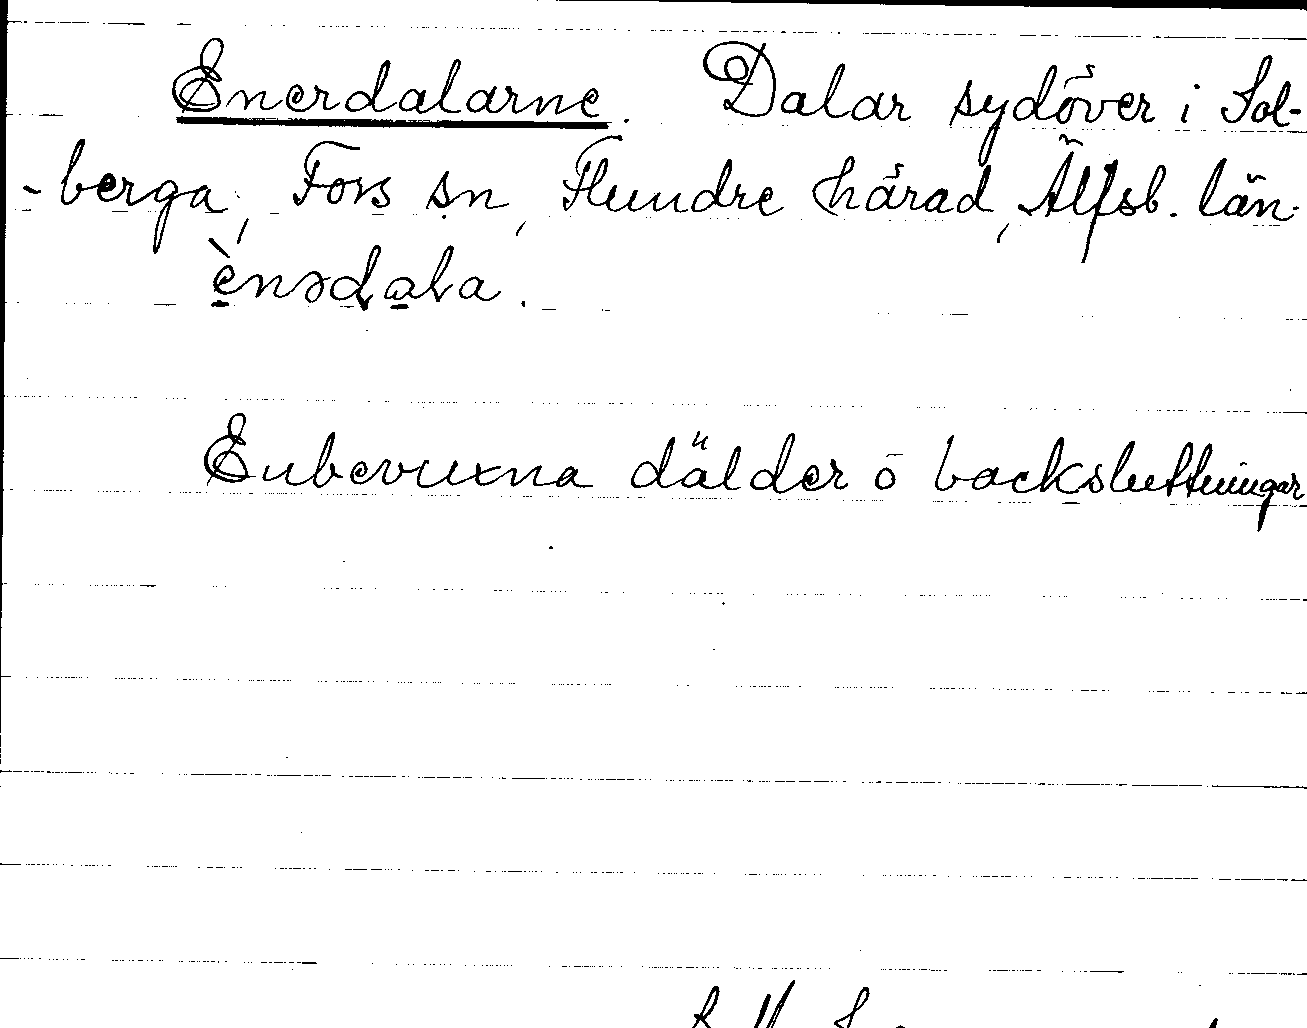 Enerdalarne. Dalar sydöver i Sol-
-berga, Fors sn, Flundre härad, Älfsb. län.
ènərdaɫa.
Enbevuxna dälder o backsluttningar